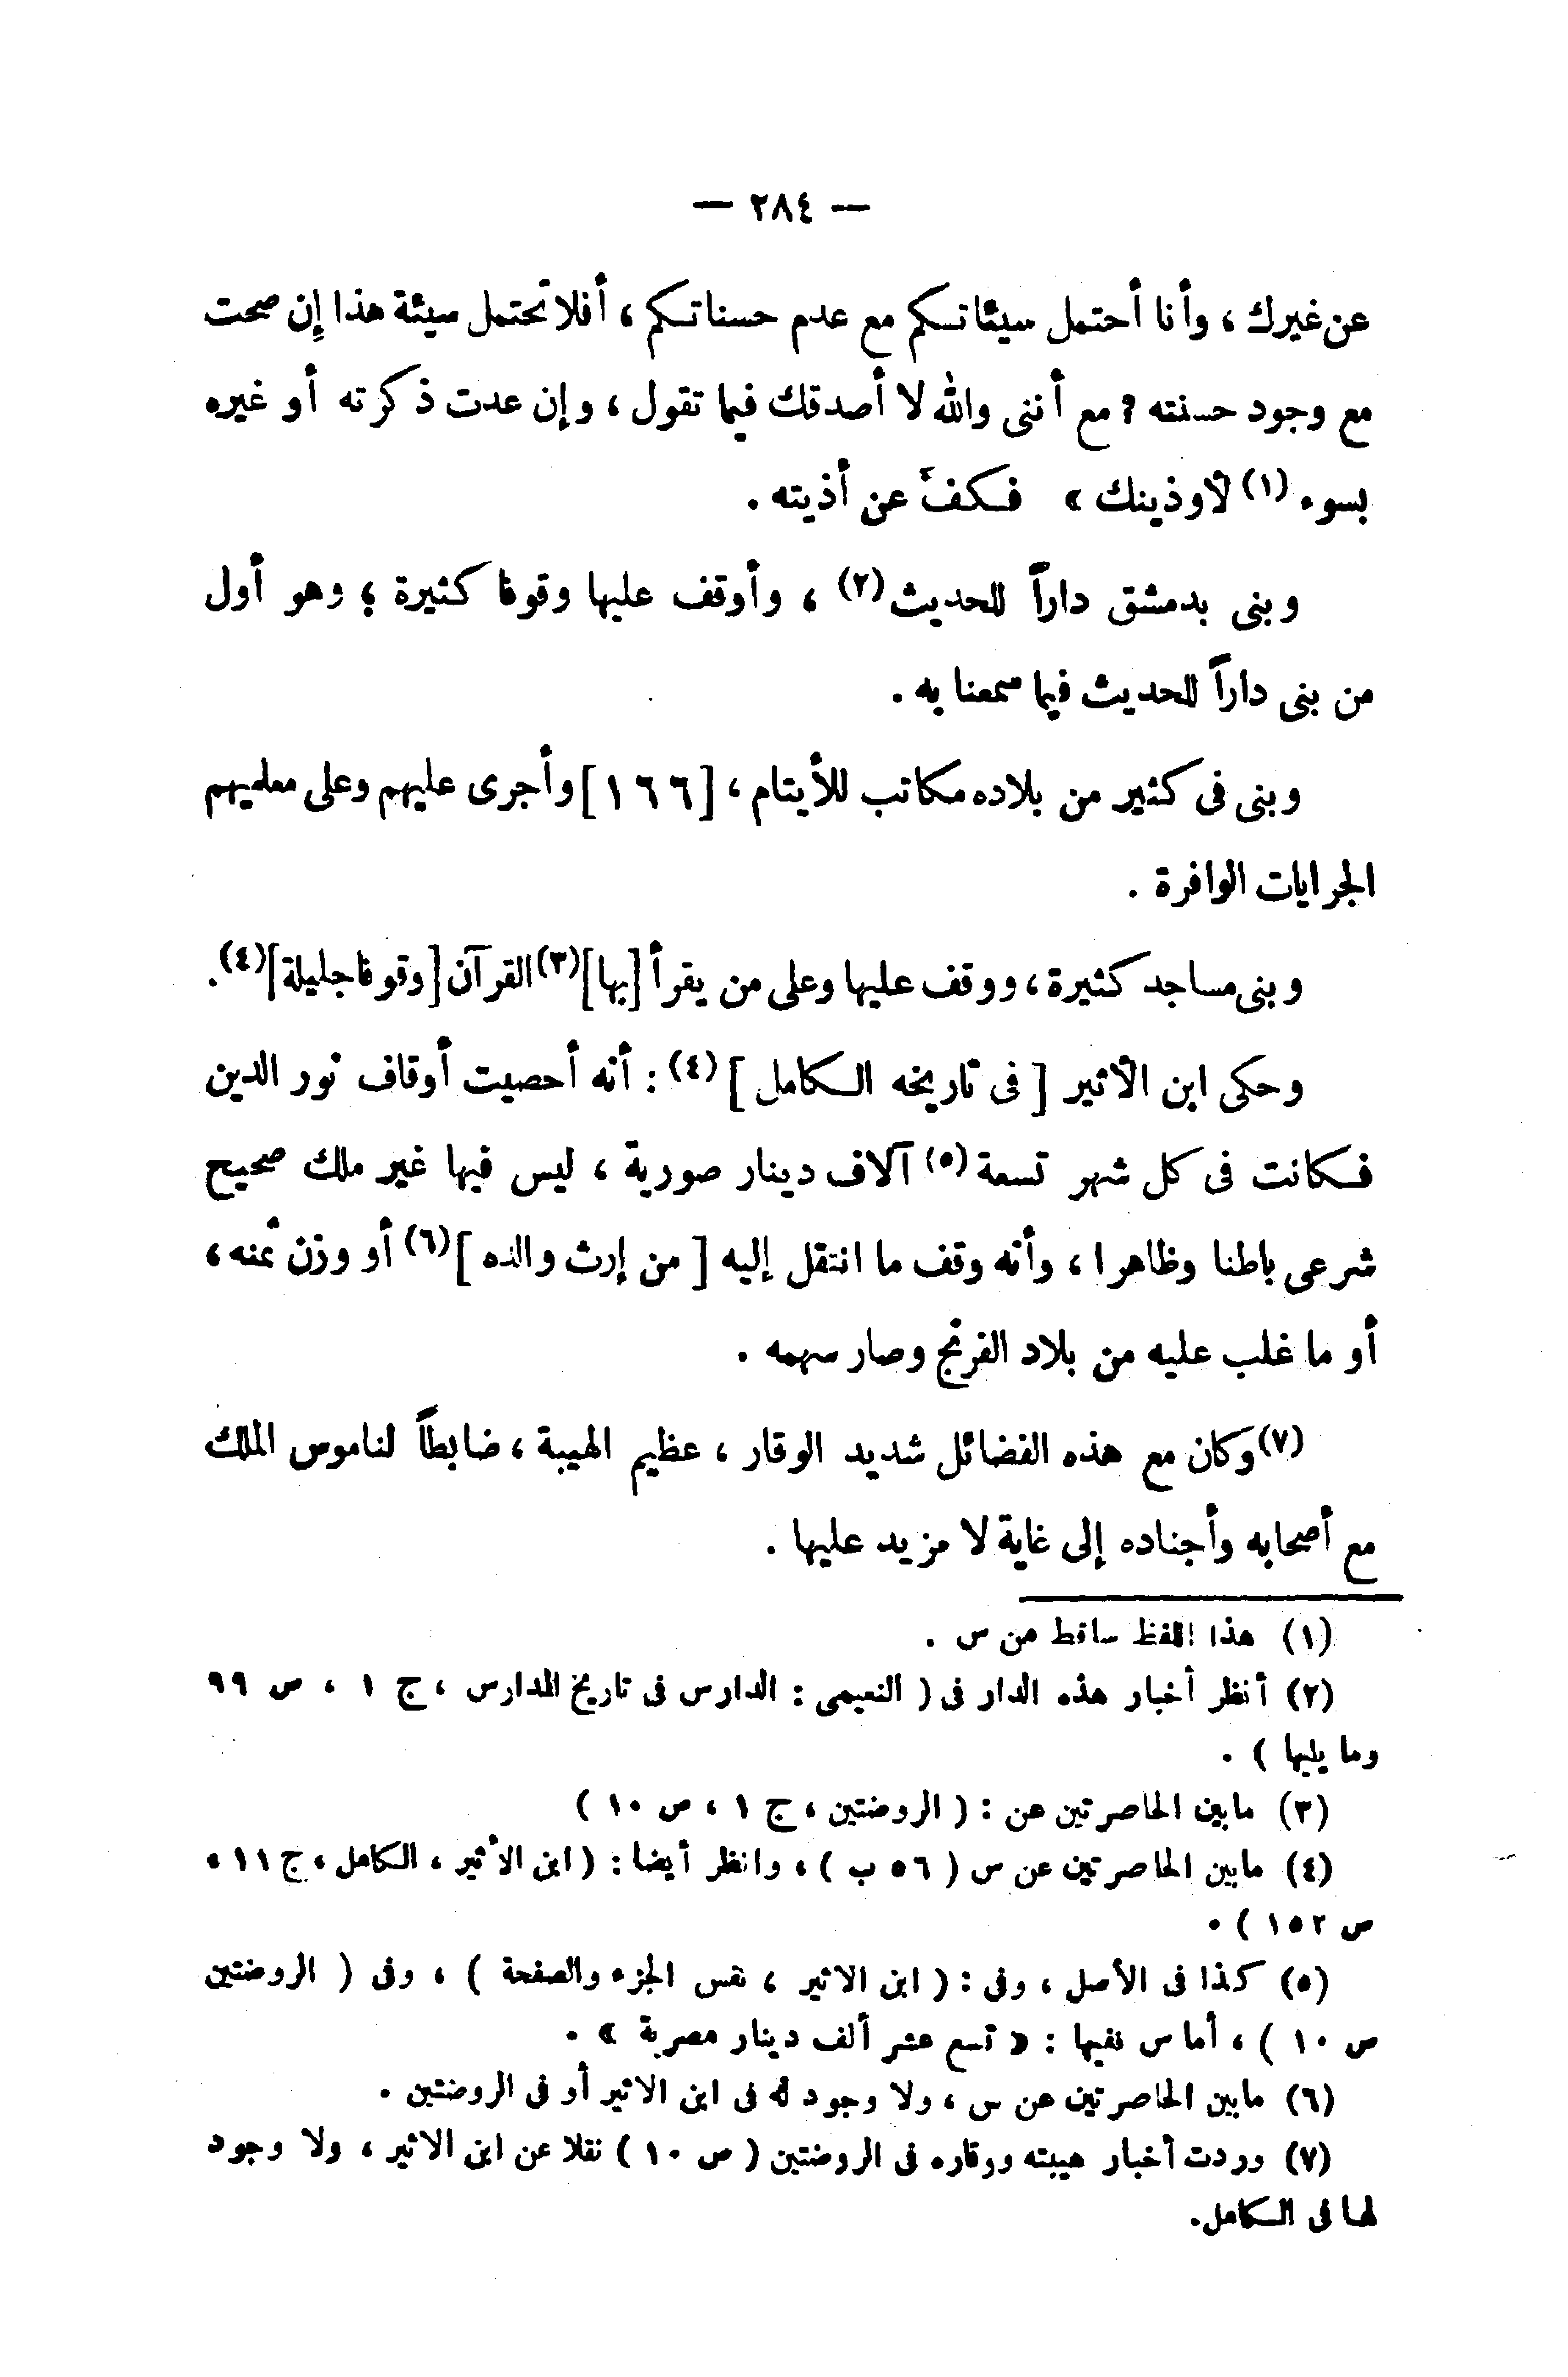 — ٢٨٤ —
عن غيرك ، وأنا أحتمل سيئاتكم مع عدم حسناتكم ، أفلا تحتمل سيئة هذا إن صحت
مع وجود حسنته ؟ مع أننى والله لا أصدقك فيما تقول ، وإن عدت ذكرته أو غيره
بسوء (١) لأوذينك » فكفَّ عن أذيته .
وبنى بدمشق داراً للحديث (٢) ، وأوقف عليها وقوفا كثيرة ؛ وهو أول
من بنى داراً للحديث فيما سمعنا به .
وبنى فى كثير من بلاده مكاتب للأيتام ، [١٦٦] وأجرى عليهم وعلى معلميهم
الجرايات الوافرة .
وبنى مساجد كثيرة ، ووقف عليها وعلى من يقرأ [بها] (٣) القرآن [وقوفا جليلة] (٤) .
وحكى ابن الأثير [ فى تاريخه الكامل ] (٤) : أنه أحصيت أوقاف نور الدين
فكانت فى كل شهر تسعة (٥) آلاف دينار صورية ، ليس فيها غير ملك صحيح
شرعى باطنا وظاهرا ، وأنه وقف ما انتقل إليه [ من إرث والده ] (٦) أو وزن ثمنه ،
أو ما غلب عليه من بلاد الفرنج وصار سهمه .
(٧) وكان مع هذه الفضائل شديد الوقار ، عظيم الهيبة ، ضابطاً لناموس الملك
مع أصحابه وأجناده إلى غاية لا مزيد عليها .
(١) هذا اللفظ ساقط من س .
(٢) أنظر أخبار هذه الدار فى ( النعيمى : الدارس فى تاريخ المدارس ، ج ١ ، ص ٩٩
وما يليها ) .
(٣) مابين الحاصرتين عن : ( الروضتين ، ج ١ ، ص ١٠ )
(٤) مابين الحاصرتين عن س ( ٥٦ ب ) ، وانظر أيضا : ( ابن الأثير ، الكامل ، ج ١١ ،
ص ١٥٢ ) .
(٥) كذا فى الأصل ، وفى : ( ابن الاثير ، نفس الجزء والصفحة ) ، وفى ( الروضتين
ص ١٠ ) ، أما س ففيها : « تسع عشر ألف دينار مصرية » .
(٦) مابين الحاصرتين عن س ، ولا وجود له فى ابن الاثير أو فى الروضتين .
(٧) وردت أخبار هيبته ووقاره فى الروضتين ( ص ١٠ ) نقلا عن ابن الاثير ، ولا وجود
لها فى الكامل .